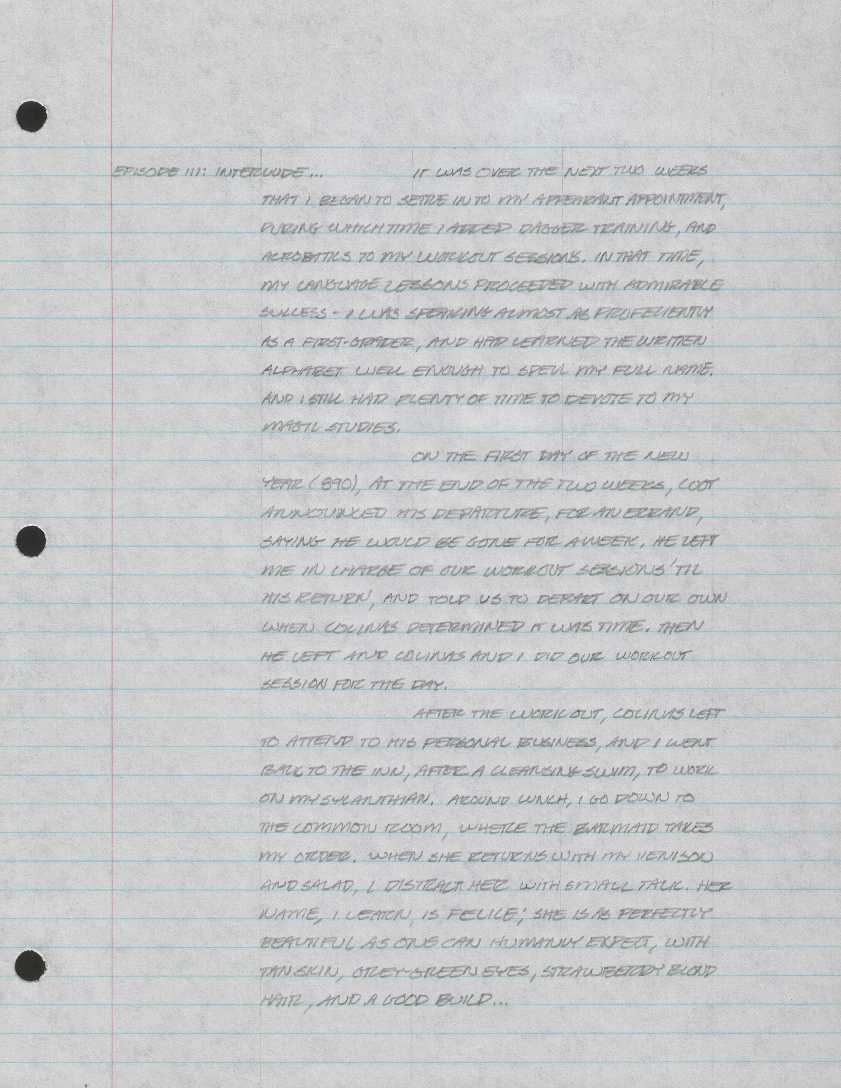 EPISODE III: INTERLUDE... IT WAS OVER THE NEXT TWO WEEKS
THAT I BEGAN TO SETTLE IN TO MY APPEARANT APPOINTMENT,
DURING WHICH TIME I ADDED DAGGER TRAINING, AND
ACROBATICS TO MY WORKOUT SESSIONS. IN THAT TIME,
MY LANGUAGE LESSONS PROCEEDED WITH ADMIRABLE
SUCCESS - I WAS SPEAKING ALMOST AS PROFICIENTLY
AS A FIRST-GRADER, AND HAD LEARNED THE WRITTEN
ALPHABET WELL ENOUGH TO SPELL MY FULL NAME.
AND I STILL HAD PLENTY OF TIME TO DEVOTE TO MY
MAGIC STUDIES.
ON THE FIRST DAY OF THE NEW
YEAR (890), AT THE END OF THE TWO WEEKS, COOT
ANNOUNCED HIS DEPARTURE, FOR AN ERRAND,
SAYING HE WOULD BE GONE FOR A WEEK. HE LEFT
ME IN CHARGE OF OUR WORKOUT SESSIONS 'TIL
HIS RETURN, AND TOLD US TO DEPART ON OUR OWN
WHEN COLINAS DETERMINED IT WAS TIME. THEN
HE LEFT AND COLINAS AND I DID OUR WORKOUT
SESSION FOR THE DAY.
AFTER THE WORKOUT, COLINAS LEFT
TO ATTEND TO HIS PERSONAL BUSINESS, AND I WENT
BACK TO THE INN, AFTER A CLEANSING SWIM, TO WORK
ON MY SYLANTHIAN. AROUND LUNCH, I GO DOWN TO
THE COMMON ROOM, WHERE THE BARMAID TAKES
MY ORDER. WHEN SHE RETURNS WITH MY VENISON
AND SALAD, I DISTRACT HER WITH SMALL TALK. HER
NAME, I LEARN, IS FELICE; SHE IS AS PERFECTLY
BEAUTIFUL AS ONE CAN HUMANLY EXPECT, WITH
TAN SKIN, GREY-GREEN EYES, STRAWBERRY BLOND
HAIR, AND A GOOD BUILD...